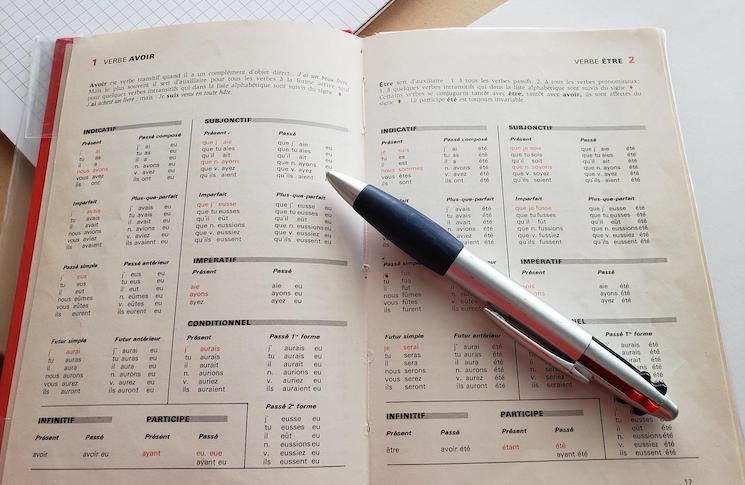 1 VERBE AVOIR
Avoir est verbe transitif quand il a un complément d'objet direct : J'ai un beau livre.
Mais le plus souvent il sert d'auxiliaire pour tous les verbes à la forme active sauf
pour quelques verbes intransitifs qui dans la liste alphabétique sont suivis du signe ♦
J'ai acheté un livre ; mais : Je suis venu en toute hâte.
INDICATIF
Présent
j' ai
tu as
il a
nous avons
vous avez
ils ont
Passé composé
j' ai eu
tu as eu
il a eu
n. avons eu
v. avez eu
ils ont eu
Imparfait
j' avais
tu avais
il avait
nous avions
vous aviez
ils avaient
Plus-que-parfait
j' avais eu
tu avais eu
il avait eu
n. avions eu
v. aviez eu
ils avaient eu
Passé simple
j' eus
tu eus
il eut
nous eûmes
vous eûtes
ils eurent
Passé antérieur
j' eus eu
tu eus eu
il eut eu
n. eûmes eu
v. eûtes eu
ils eurent eu
Futur simple
j' aurai
tu auras
il aura
nous aurons
vous aurez
ils auront
Futur antérieur
j' aurai eu
tu auras eu
il aura eu
n. aurons eu
v. aurez eu
ils auront eu
SUBJONCTIF
Présent
que j' aie
que tu aies
qu'il ait
que n. ayons
que v. ayez
qu'ils aient
Passé
que j' aie eu
que tu aies eu
qu'il ait eu
que n. ayons eu
que v. ayez eu
qu'ils aient eu
Imparfait
que j' eusse
que tu eusses
qu'il eût
que n. eussions
que v. eussiez
qu'ils eussent
Plus-que-parfait
que j' eusse eu
que tu eusses eu
qu'il eût eu
que n. eussions eu
que v. eussiez eu
qu'ils eussent eu
IMPÉRATIF
Présent
aie
ayons
ayez
Passé
aie eu
ayons eu
ayez eu
CONDITIONNEL
Présent
j' aurais
tu aurais
il aurait
n. aurions
v. auriez
ils auraient
Passé 1re forme
j' aurais eu
tu aurais eu
il aurait eu
n. aurions eu
v. auriez eu
ils auraient eu
Passé 2e forme
j' eusse eu
tu eusses eu
il eût eu
n. eussions eu
v. eussiez eu
ils eussent eu
INFINITIF
Présent
avoir
Passé
avoir eu
PARTICIPE
Présent
ayant
Passé
eu, eue
ayant eu
VERBE ÊTRE 2
Être sert d'auxiliaire : 1. à tous les verbes passifs; 2. à tous les verbes pronominaux;
3. à quelques verbes intransitifs qui dans la liste alphabétique sont suivis du signe ♦
Certains verbes se conjuguent tantôt avec être, tantôt avec avoir, ils sont affectés du
signe ♦ Le participe été est toujours invariable.
INDICATIF
Présent
je suis
tu es
il est
nous sommes
vous êtes
ils sont
Passé composé
j' ai été
tu as été
il a été
été
été
été
Plus-que-parfait
j' avais été
tu avais été
il avait été
été
été
été
Passé simple
fus
fus
il fut
nous fûmes
vous fûtes
ils furent
Futur simple
je serai
tu seras
il sera
nous serons
vous serez
ils seront
Futur antérieur
j' aurai été
tu auras été
il aura été
n. aurons été
v. aurez été
ils auront été
SUBJONCTIF
Présent
que je sois
que tu sois
qu'il soit
que n. soyons
que v. soyez
qu'ils soient
Passé
que j' aie été
que tu aies été
qu'il ait été
que n. ayons été
que v. ayez été
qu'ils aient été
Imparfait
que je fusse
que tu fusses
qu'il fût
que n. fussions
que v. fussiez
qu'ils fussent
Plus-que-parfait
que j' eusse été
que tu eusses été
qu'il eût été
que n. eussions été
que v. eussiez été
qu'ils eussent été
IMPÉRATIF
Présent
sois
soyons
soyez
Passé
aie été
ayons été
ayez été
NEL
Passé 1re forme
été
été
été
été
été
été
INFINITIF
Présent
être
Passé
avoir été
PARTICIPE
Présent
étant
Passé
été
ayant été
j' eusse été
tu eusses été
il eût été
n. eussions été
v. eussiez été
ils eussent été
17